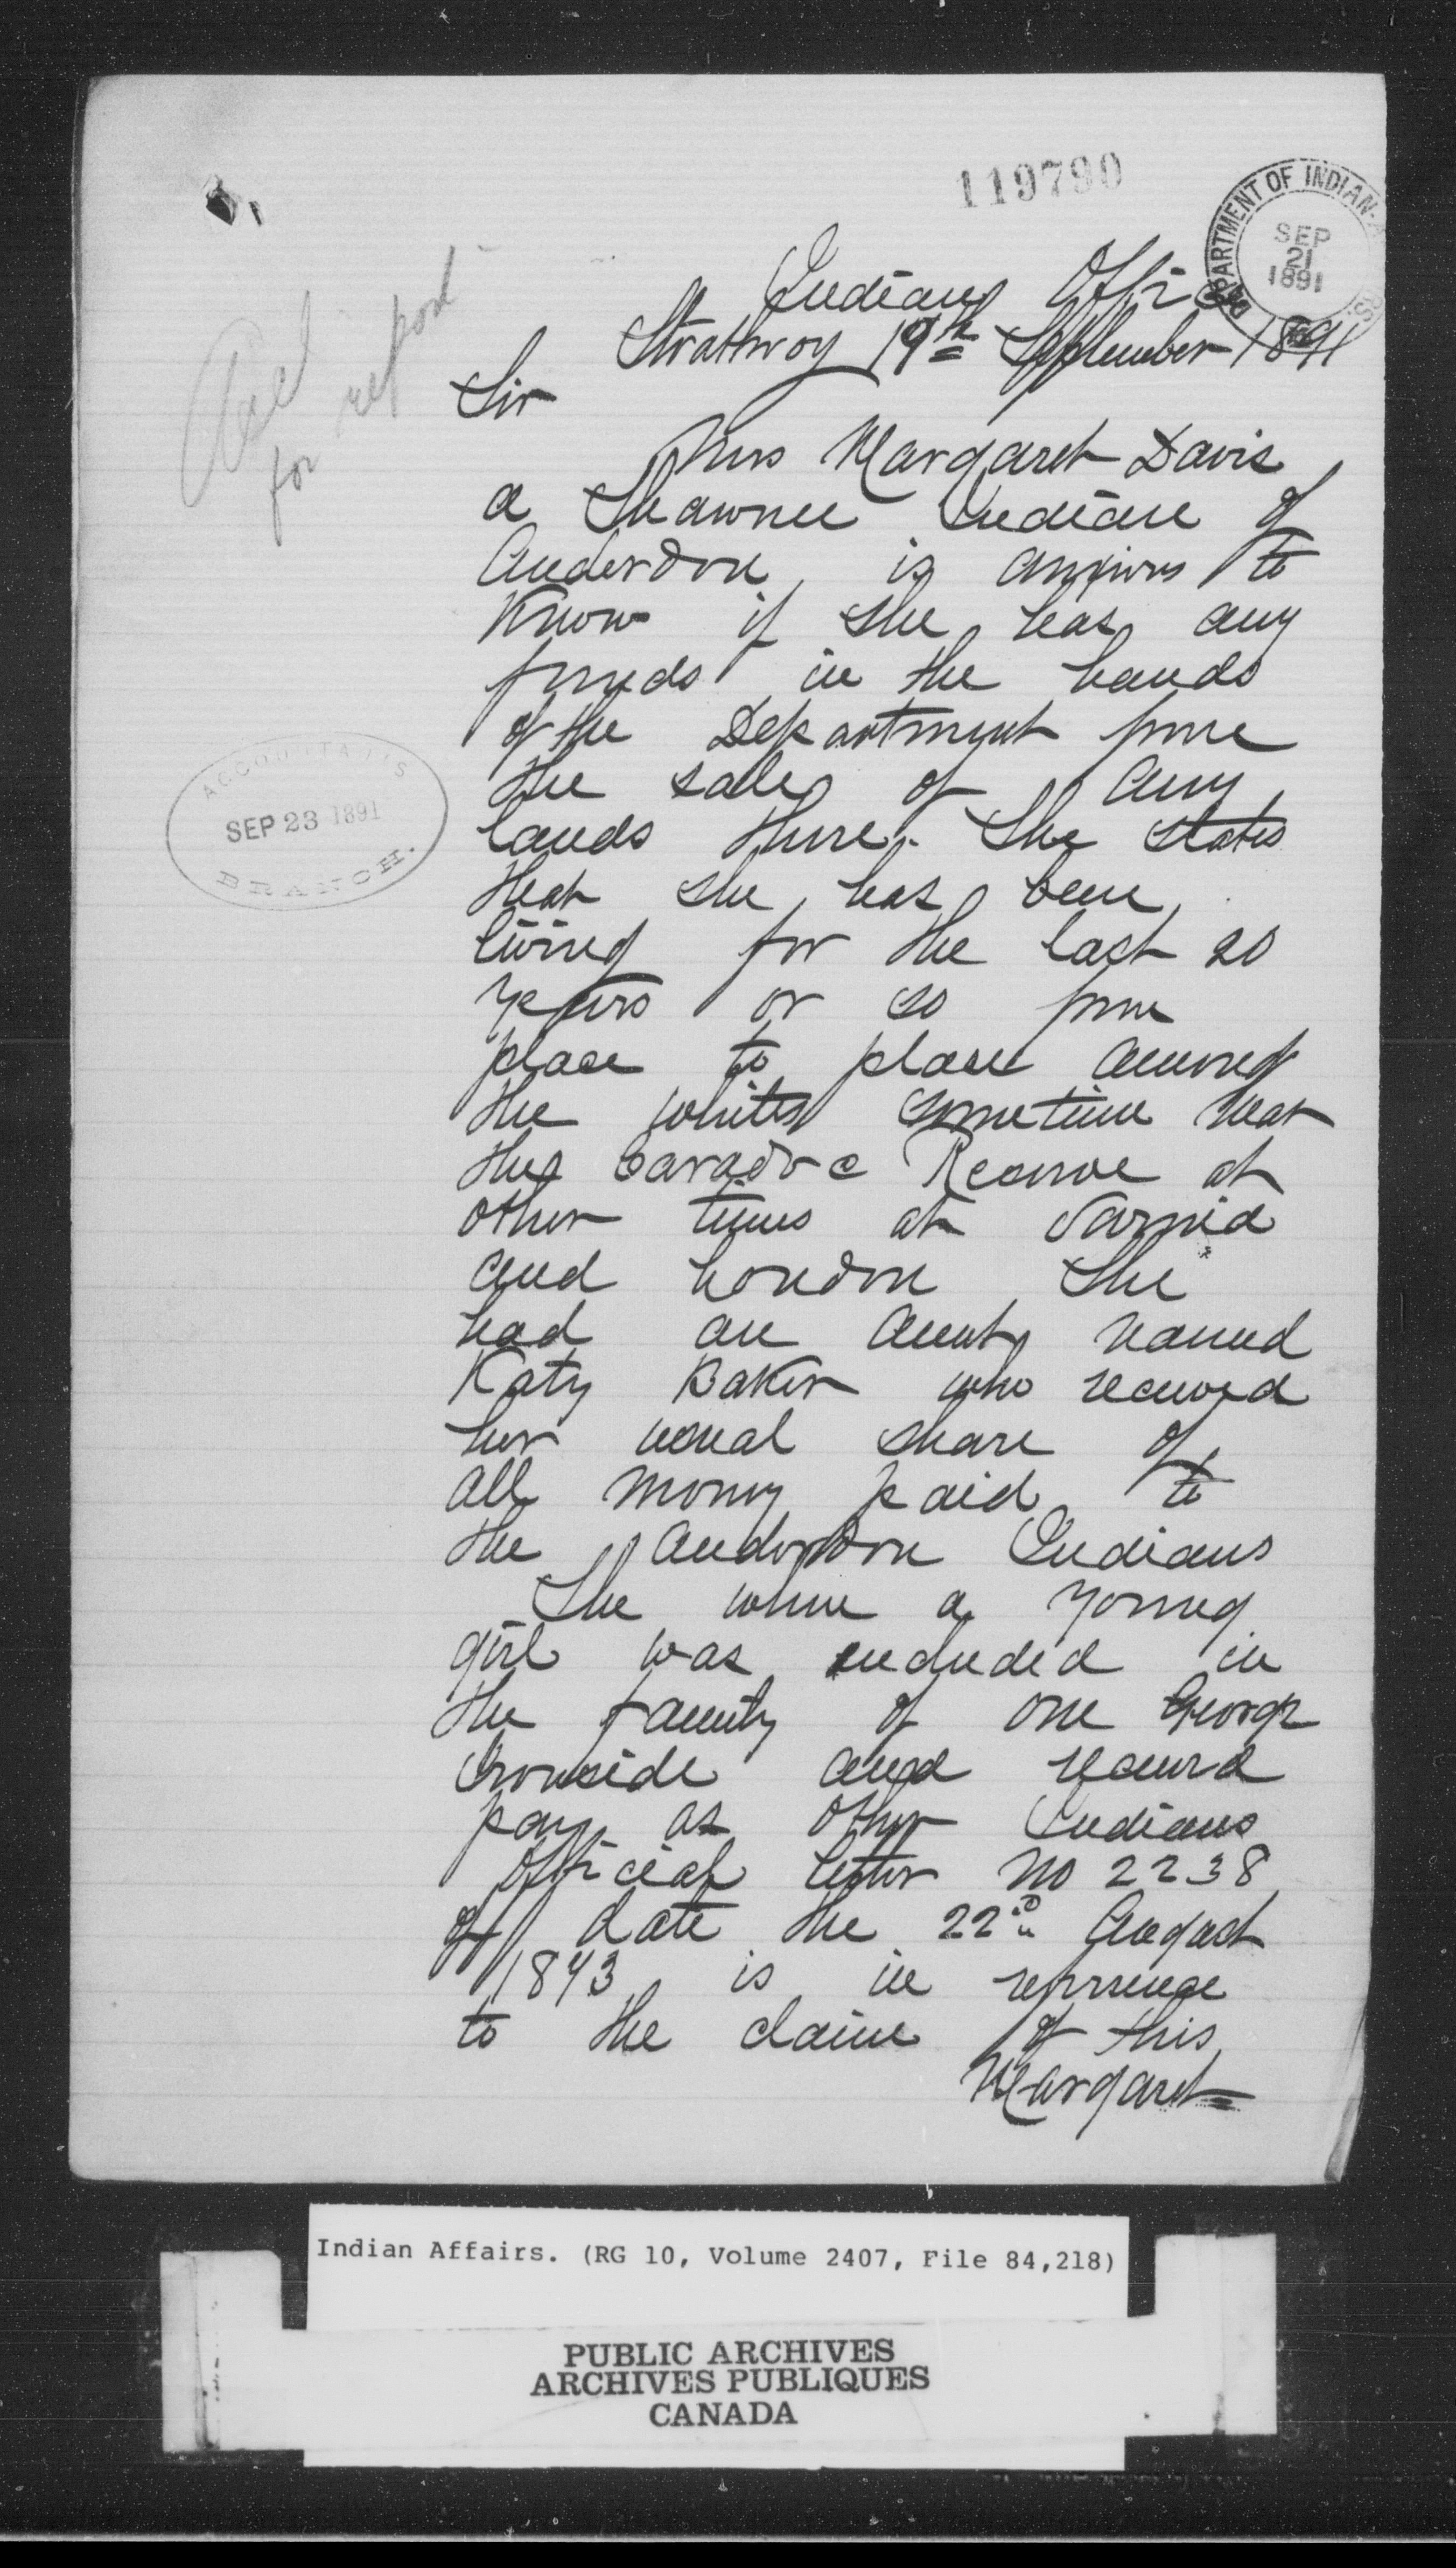 119790
DEPARTMENT OF INDIAN
SEP
21
1891
Indian Office
Strathroy 19th September 1891
for report
Sir
Mrs Margaret Davis
a Shawnee Indian of
Anderdon, is anxious to
Know if she has any
funds in the hands
of the Department from
the sale of any
lands there. She states
that she has been
living for the last 20
years or so from
place to place among
the whites sometime near
the Caradoc Reserve at
other times at Sarnia
and London She
had an aunt named
Katy Baker who received
her usual share of
all money paid to
the Anderdon Indians
She when a young
girl was included in
the family of one George
Ironside and received
pay as other Indians
Official letter No 2238
of date the 22nd August
1843 is in reference
to the claim of this
Margaret
ACCOUNTANTS
SEP 23 1891
BRANCH.
Indian Affairs. (RG 10, Volume 2407, File 84,218)
PUBLIC ARCHIVES
ARCHIVES PUBLIQUES
CANADA